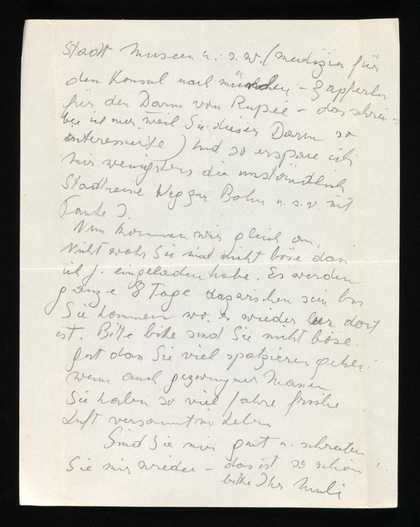 Stadt Museen u. s. w. (medizin für
den Konsul nach München – Zäpferln
für den Darm von Rupsie – das schrei-
be ich nur weil Sie dieser Darm so
interessierte) und so erspare ich
mir wenigstens die
Stadtreise wegen Bohn u. s. w mit
Tante J.
Nun kommen wir gleich an.
Nicht wahr Sie sind nicht böse das
ich J. eingeladen habe. Es werden
ganze 8 Tage dazwischen sein bis
Sie kommen wo er wieder dort
ist. Bitte bitte sind Sie nicht böse.
gut das Sie viel spazieren gehen
wenn auch gezwungner Massen
Sie haben so viel Jahre frische
Luft versäumt im Leben
Sind Sie mir gut u. schreiben
Sie mir wieder – das ist so schön
bitte Ihre